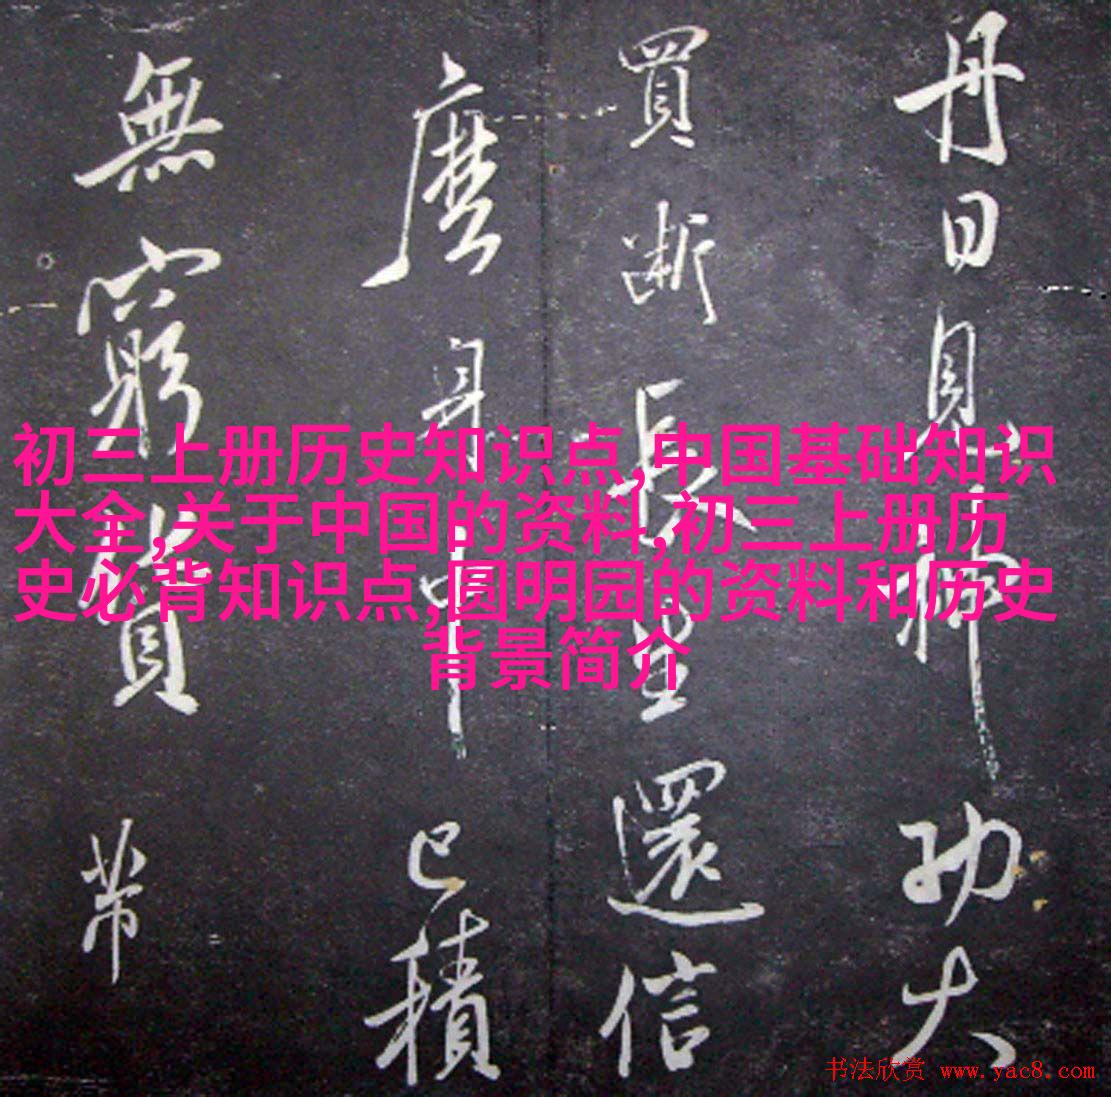 丹日見神功大
買斷長生還信
麼身中已積
無窮貨帶
初三上册历史知识点,中国基础知识
大全,关于中国的资料,初三上册历
史必背知识点,圆明园的资料和历史
背景简介
书法欣赏 www.yac8.com